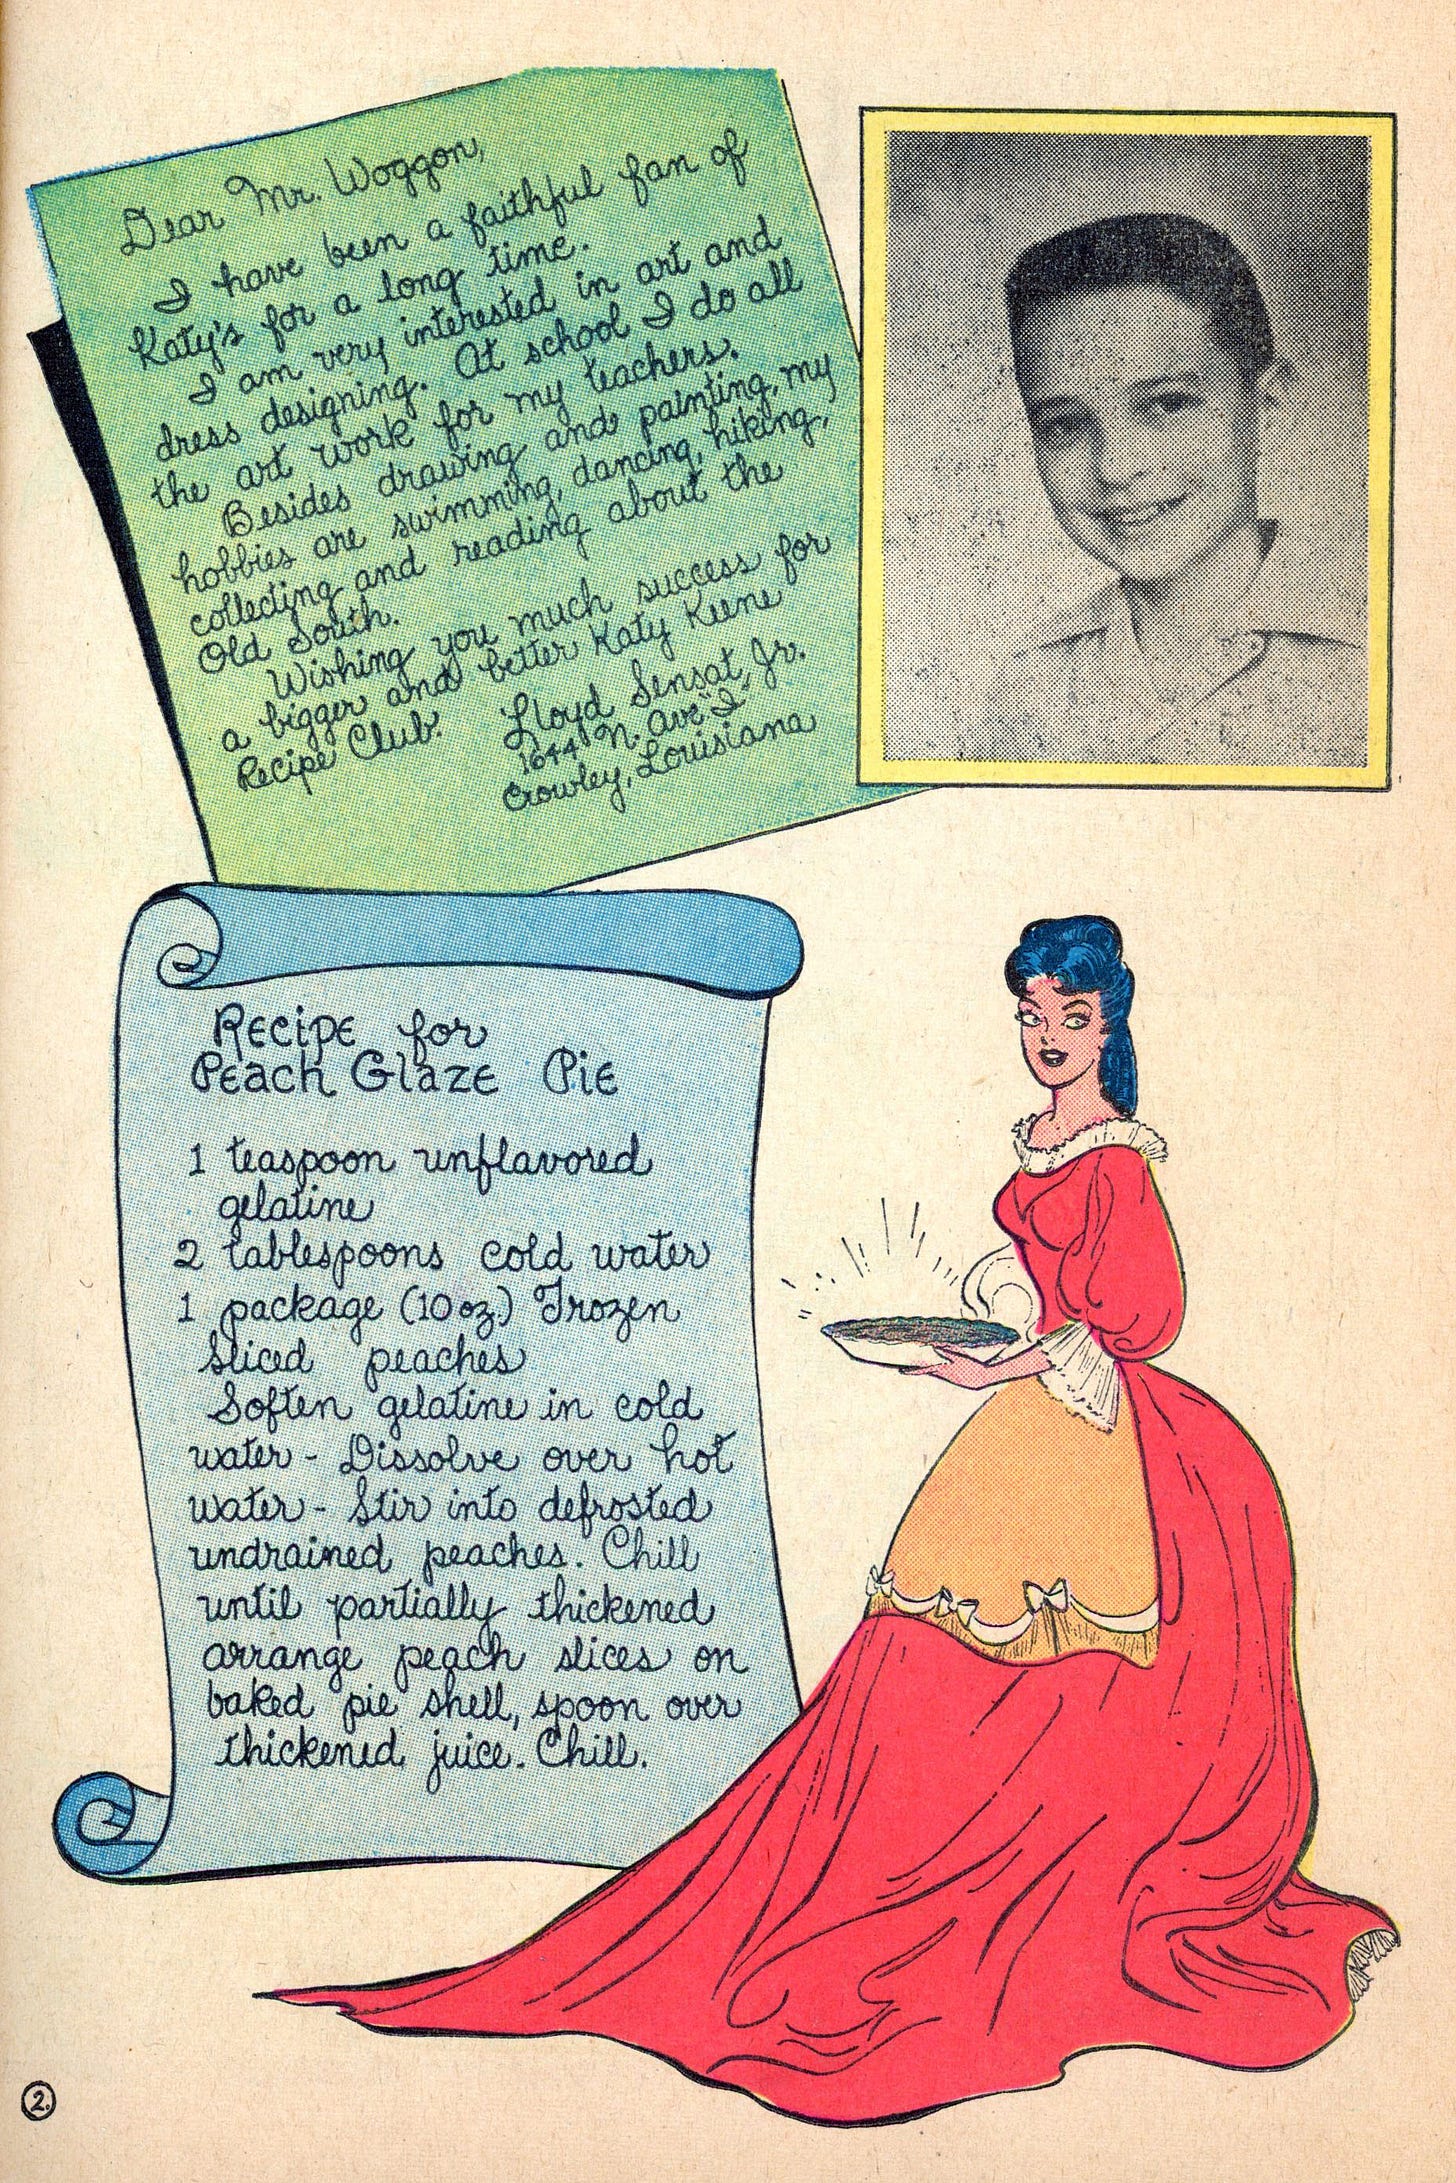 Dear Mr. Woggon,
I have been a faithful fan of
Katy's for a long time.
I am very interested in art and
dress designing. At school I do all
the art work for my teachers.
Besides drawing and painting, my
hobbies are swimming, dancing, hiking,
collecting and reading about the
Old South.
Wishing you much success for
a bigger and better Katy Keene
Recipe Club.
Lloyd Sensat, Jr.
1644 N. Ave "I"
Crowley, Louisiana
Recipe for
Peach Glaze Pie
1 teaspoon unflavored
gelatine
2 tablespoons cold water
1 package (10 oz.) Frozen
sliced peaches
Soften gelatine in cold
water - Dissolve over hot
water - Stir into defrosted
undrained peaches. Chill
until partially thickened
arrange peach slices on
baked pie shell, spoon over
thickened juice. Chill.
2.